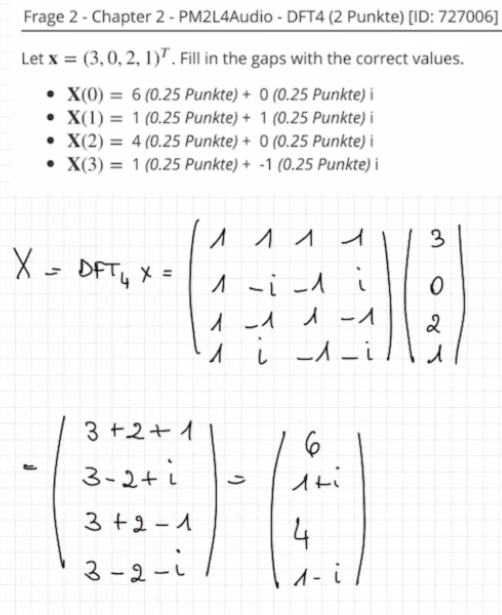 Frage 2 - Chapter 2 - PM2L4Audio - DFT4 (2 Punkte) [ID: 727006]
Let x = (3, 0, 2, 1)ᵀ. Fill in the gaps with the correct values.
• X(0) = 6 (0.25 Punkte) + 0 (0.25 Punkte) i
• X(1) = 1 (0.25 Punkte) + 1 (0.25 Punkte) i
• X(2) = 4 (0.25 Punkte) + 0 (0.25 Punkte) i
• X(3) = 1 (0.25 Punkte) + -1 (0.25 Punkte) i
1 1 1 1 3
X = DFT₄ x = 1 -i -1 i 0
1 -1 1 -1 2
1 i -1 -i 1
3 + 2 + 1 6
= 3 - 2 + i = 1+i
3 + 2 - 1 4
3 - 2 - i 1 - i